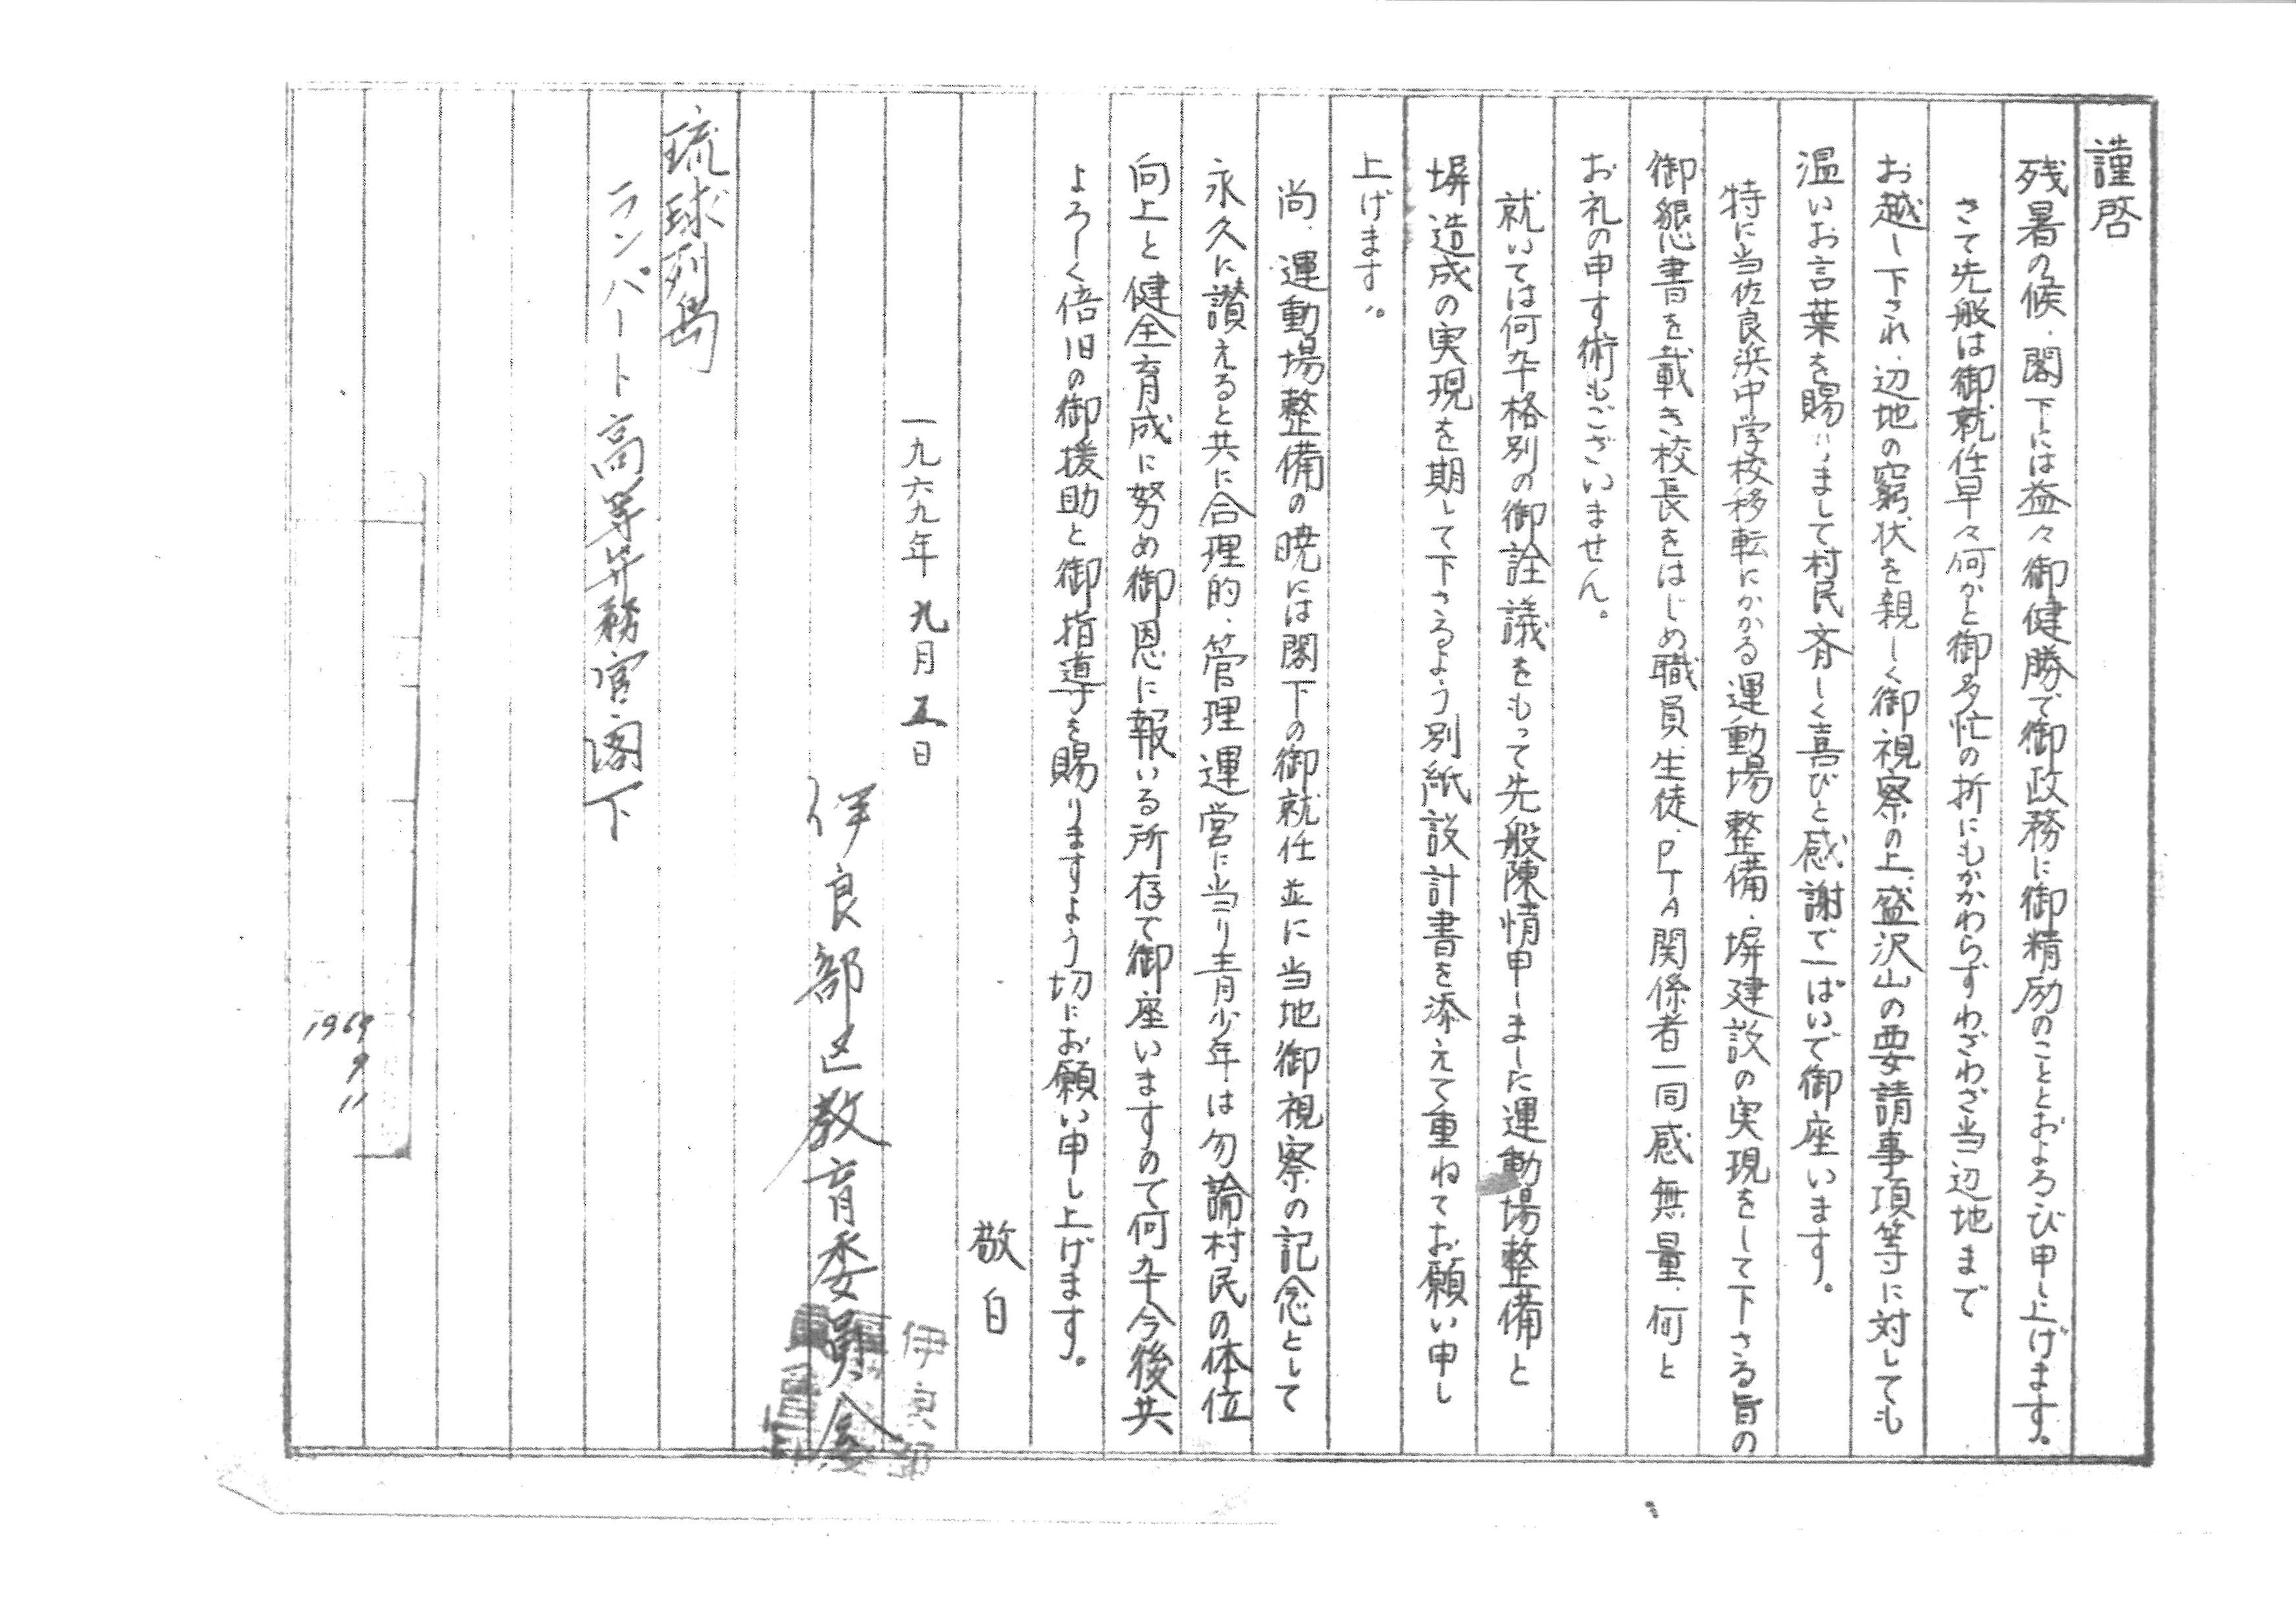 謹啓
残暑の候、閣下には益々御健勝で御政務に御精励のこととおよろび申し上げます。
さて先般は御就任早々何かと御多忙の折にもかかわらずわざわざ当辺地まで
お越し下され、辺地の窮状を親しく御視察の上、盛沢山の要請事項等に対しても
温いお言葉を賜いまして村民斉しく喜びと感謝で一ぱいで御座います。
特に当佐良浜中学校移転にかかる運動場整備、塀建設の実現をして下さる旨の
御懇書を戴き校長をはじめ職員、生徒、PTA関係者一同感無量、何と
お礼の申す術もございません。
就いては何卒格別の御詮議をもって先般陳情申しました運動場整備と
塀造成の実現を期して下さるよう別紙設計書を添えて重ねてお願い申し
上げます。
尚、運動場整備の暁には閣下の御就任並に当地御視察の記念として
永久に讃えると共に合理的、管理運営に当り青少年は勿論村民の体位
向上と健全育成に努め御恩に報いる所存で御座いますので何卒今後共
よろしく倍旧の御援助と御指導を賜りますよう切にお願い申し上げます。
敬白
一九六九年九月五日
伊良部区教育委員会
伊良部
琉球列島
ランパート高等弁務官閣下
1969
9
11